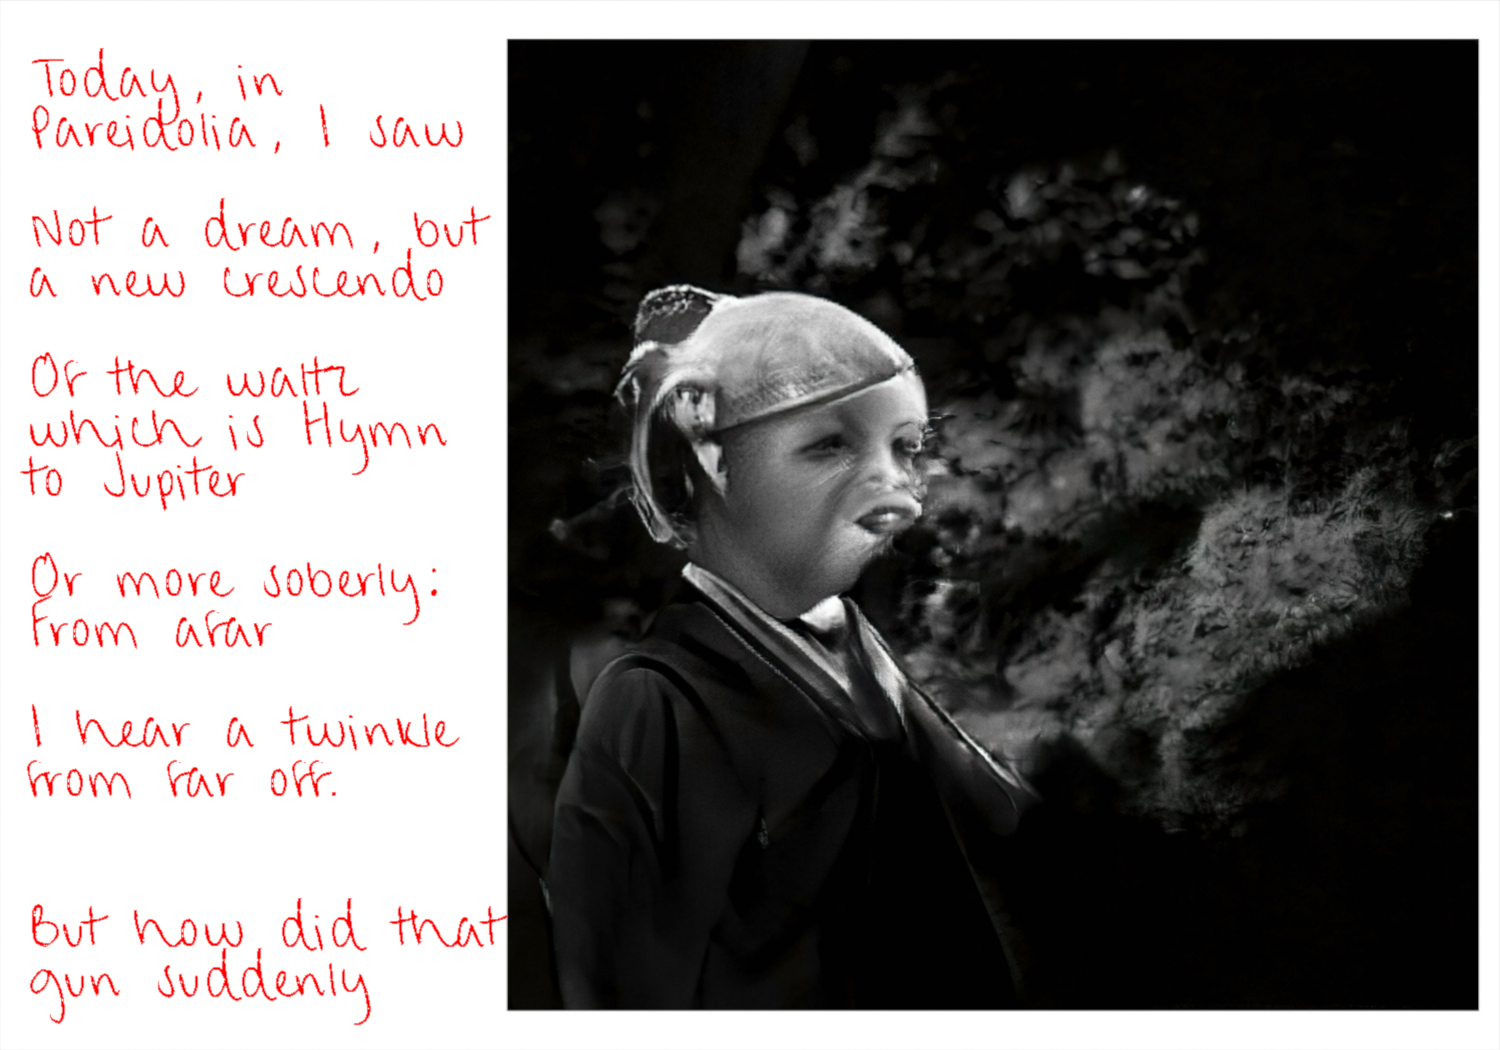 Today, in
Pareidolia, I saw
Not a dream, but
a new crescendo
Or the waltz
which is Hymn
to Jupiter
Or more soberly:
From afar
I hear a twinkle
from far off.
But how did that
gun suddenly